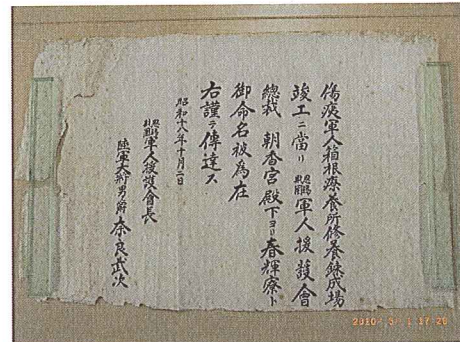 傷痍軍人箱根療養所修養錬成場
竣工ニ當リ恩賜財團軍人援護會
總裁 朝香宮殿下ヨリ春輝寮ト
御命名被為在
右謹テ傳達ス
昭和十八年十月二日
恩賜財團軍人援護會長
陸軍大將男爵 奈良武次
2010 3 1 17:26